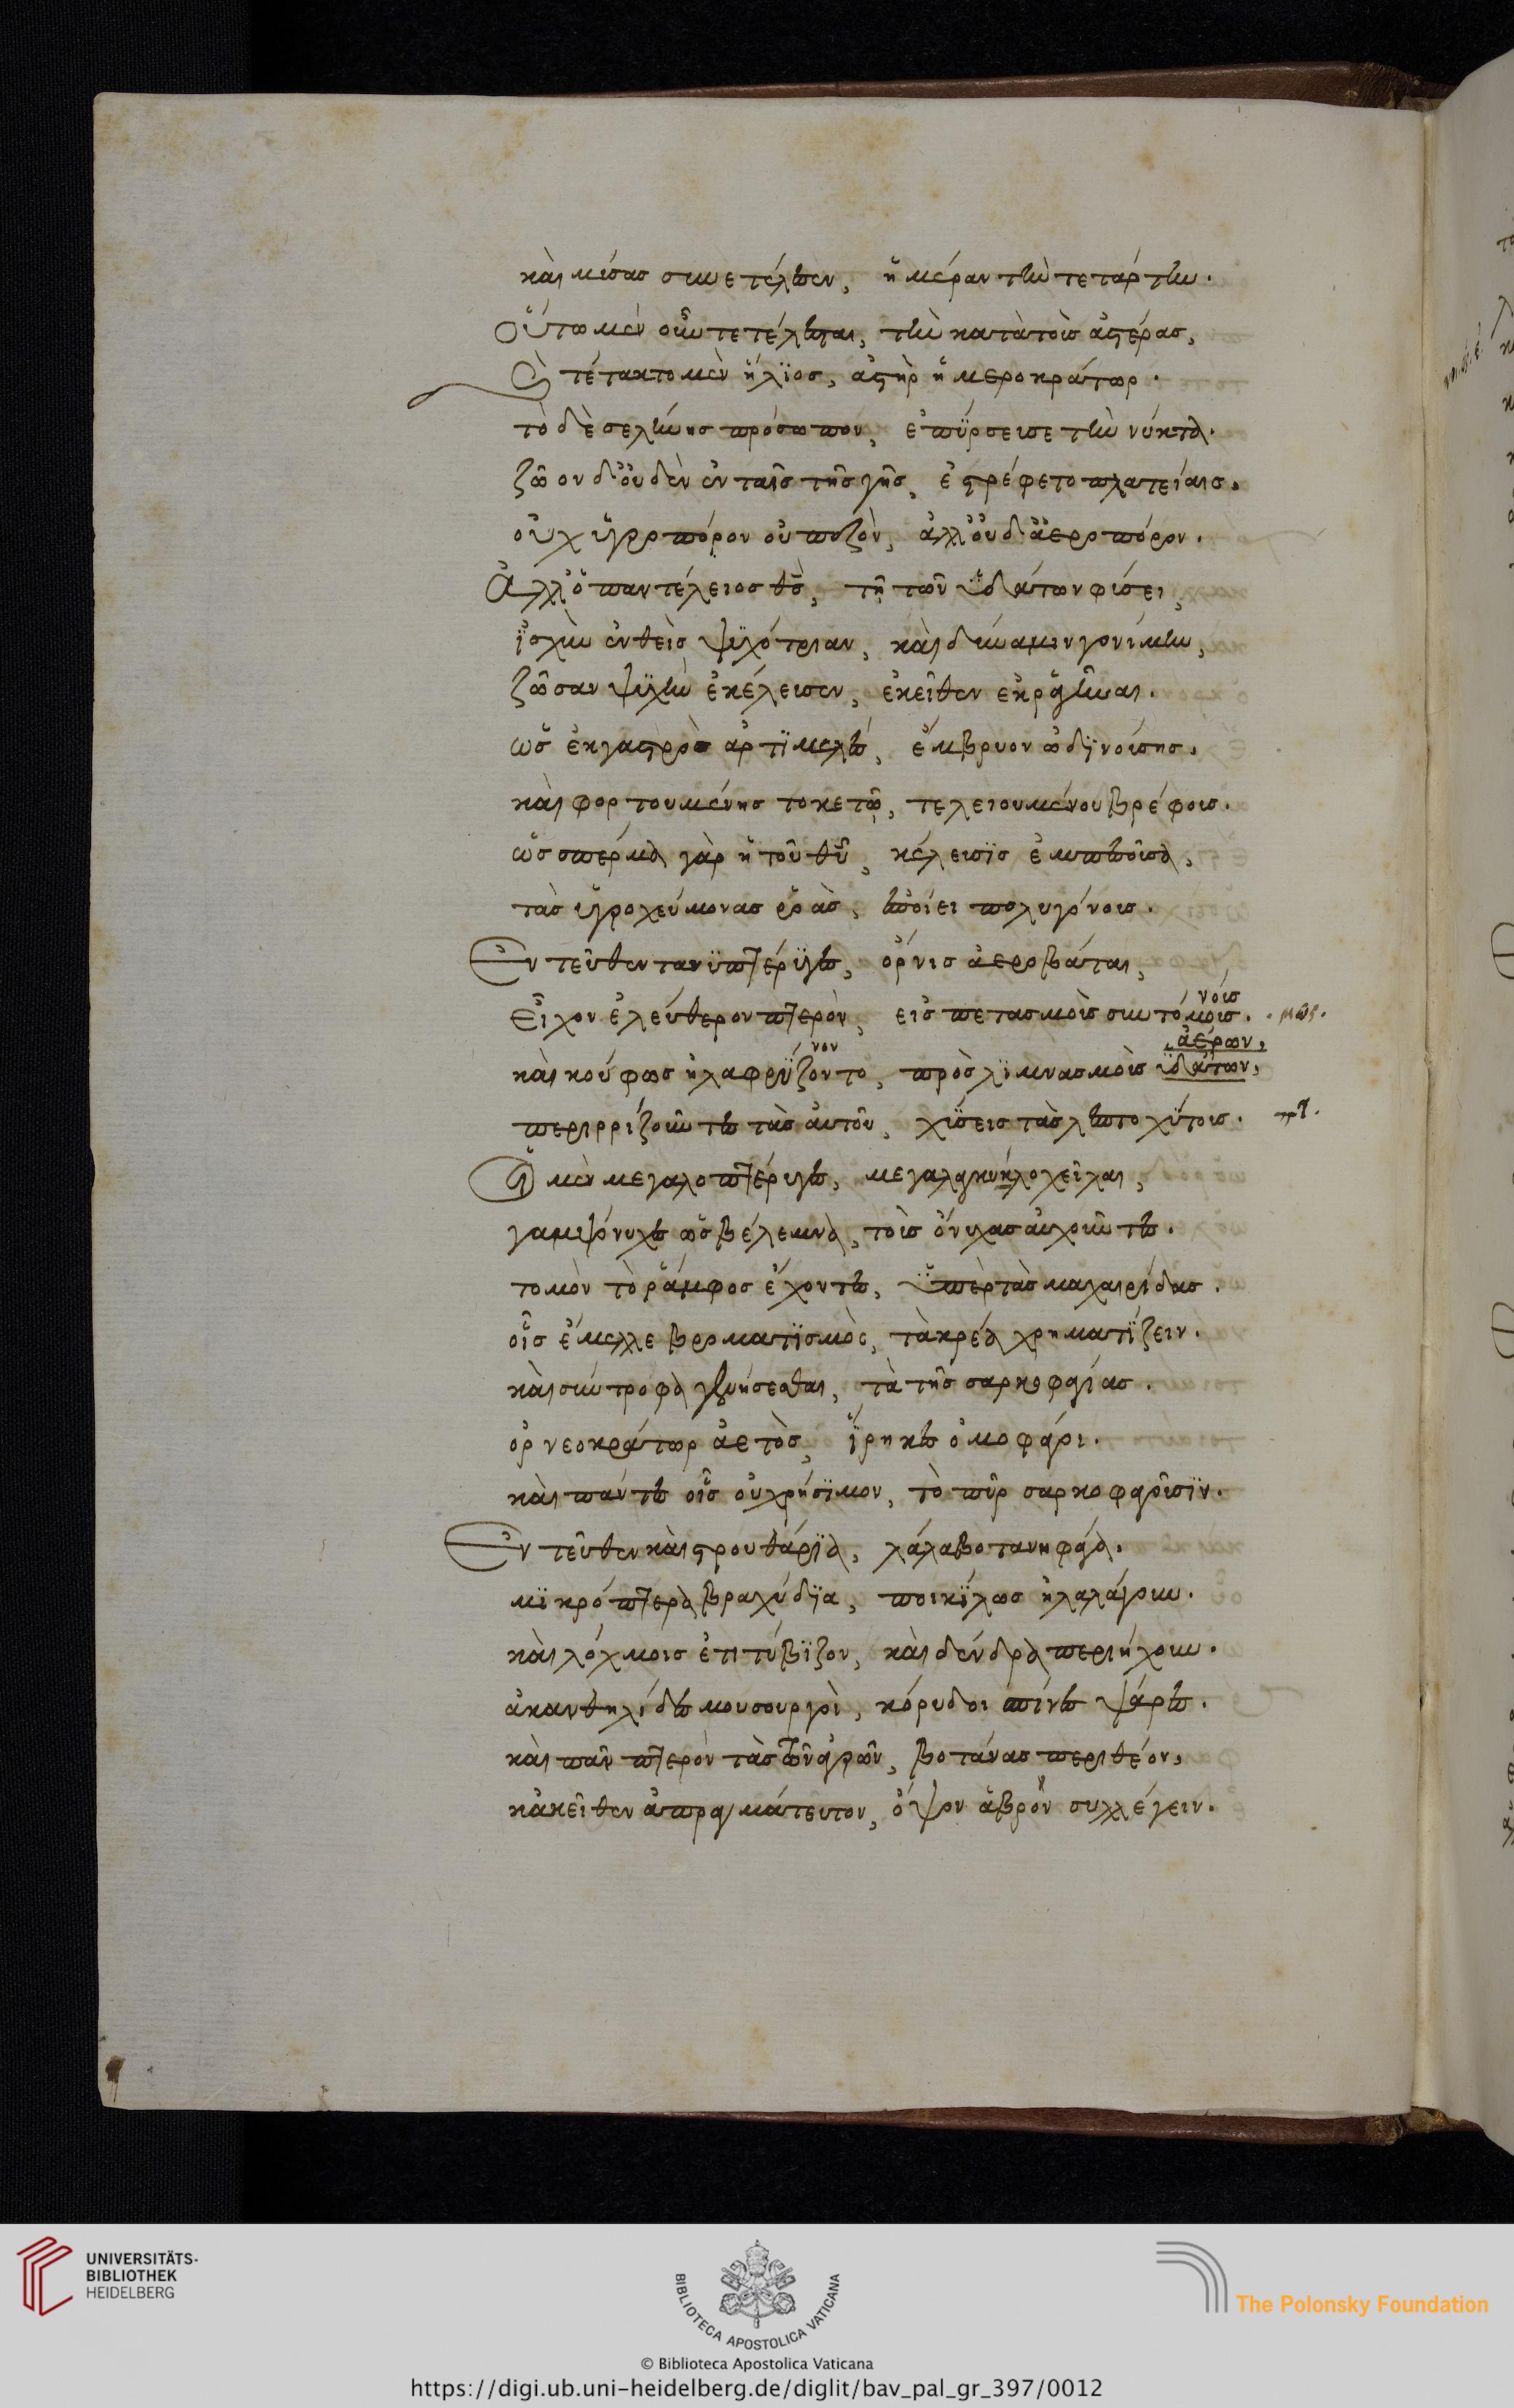 καὶ μέσας συνετέλεσεν, ἡμέραν τὴν τετάρτην.
Οὕτω μὲν οὖν τετέλεσται, τὴν κατὰ τοὺς ἀστέρας,
Ἐτέτακτο μὲν ἥλιος, ἀστὴρ ἡμεροκράτωρ.
τὸ δὲ σελήνης πρόσωπον, ἐπύρσευσε τὴν νύκτα.
ζῶον δ' οὐδὲν ἐν ταῖς τῆς γῆς, ἐστρέφετο πλατείαις.
οὐχ ὑγροπόρον οὐ πεζὸν, ἀλλ' οὐδ' ἀεροπόρον.
Ἀλλ' ὁ παντέλειος θς, τῇ τῶν ὑδάτων φύσει,
ἰσχὺν ἐνθεὶς ψυχότριαν, καὶ δύναμιν γονίμην,
ζῶσαν ψυχὴν ἐκέλευσεν, ἐκεῖθεν ἐκραγῆναι.
ὡς ἐκ γαστρὸς ἀρτιμελὲς, ἔμβρυον ὠδινούσης.
καὶ φορτουμένης τοκετῷ, τελειουμένου βρέφους.
ὡς σπέρμα γὰρ ἡ τοῦ θυ, κέλευσις ἐμπεσοῦσα,
τὰς ὑγροχεύμονας ῥοὰς, ἐποίει πολυγόνους.
Ἐντεῦθεν τανυπτέρυγες, ὄρνις ἀεροβάται,
Εἶχον ἐλεύθερον πτερὸν, εἰς πετασμοὺς συντόμους.
νους
καὶ κούφως ἠλαφρύζοντο, πρὸς λιμνασμοὺς ὑδάτων,
νον
ἀέρων,
περιρρίζουν τε τὰς αὐτοῦ, χύσεις τὰς λεπτοχύτους.
Οἱ μὲν μεγαλοπτέρυγες, μεγαλαγκυκλοχεῖλαι,
γαμψόνυχες ὡς βέλεμνα, τοὺς ὄνυχας αὐχοῦντες.
τομὸν τὸ ῥάμφος ἔχοντες, ὑπὲρ τὰς μαχαιρίδας.
οἷς ἔμελλε βρωματισμὸς, τὰ κρέα χρηματίζειν.
καὶ σύντροφα γενήσεσθαι, τὰ τῆς σαρκοφαγίας.
ὀρνεοκράτωρ ἀετὸς, ἱέρακες ὠμοφάγοι.
καὶ πάντες οἷς οὐ χρήσιμον, τὸ πῦρ σαρκοφαγοῦσιν.
Ἐντεῦθεν καὶ στρουθάρια, λάλα βοτανηφάγα.
μικρόπτερα βραχύδια, ποικίλως ἠλαλάγουν.
καὶ λόχμοις ἐτιτύβιζον, καὶ δένδρα περιήχουν.
ἀκανθηλίδες μουσουργοὶ, κόρυδοι σπίνες ψάρες.
καὶ πᾶν πτερὸν τὰς τῶν ἀγρῶν, βοτάνας περιθέον,
κἀκεῖθεν ἀπραγμάτευτον, ὄψον ἁβρὸν συλλέγειν.
UNIVERSITÄTS-
BIBLIOTHEK
HEIDELBERG
BIBLIOTECA APOSTOLICA VATICANA
The Polonsky Foundation
© Biblioteca Apostolica Vaticana
https://digi.ub.uni-heidelberg.de/diglit/bav_pal_gr_397/0012